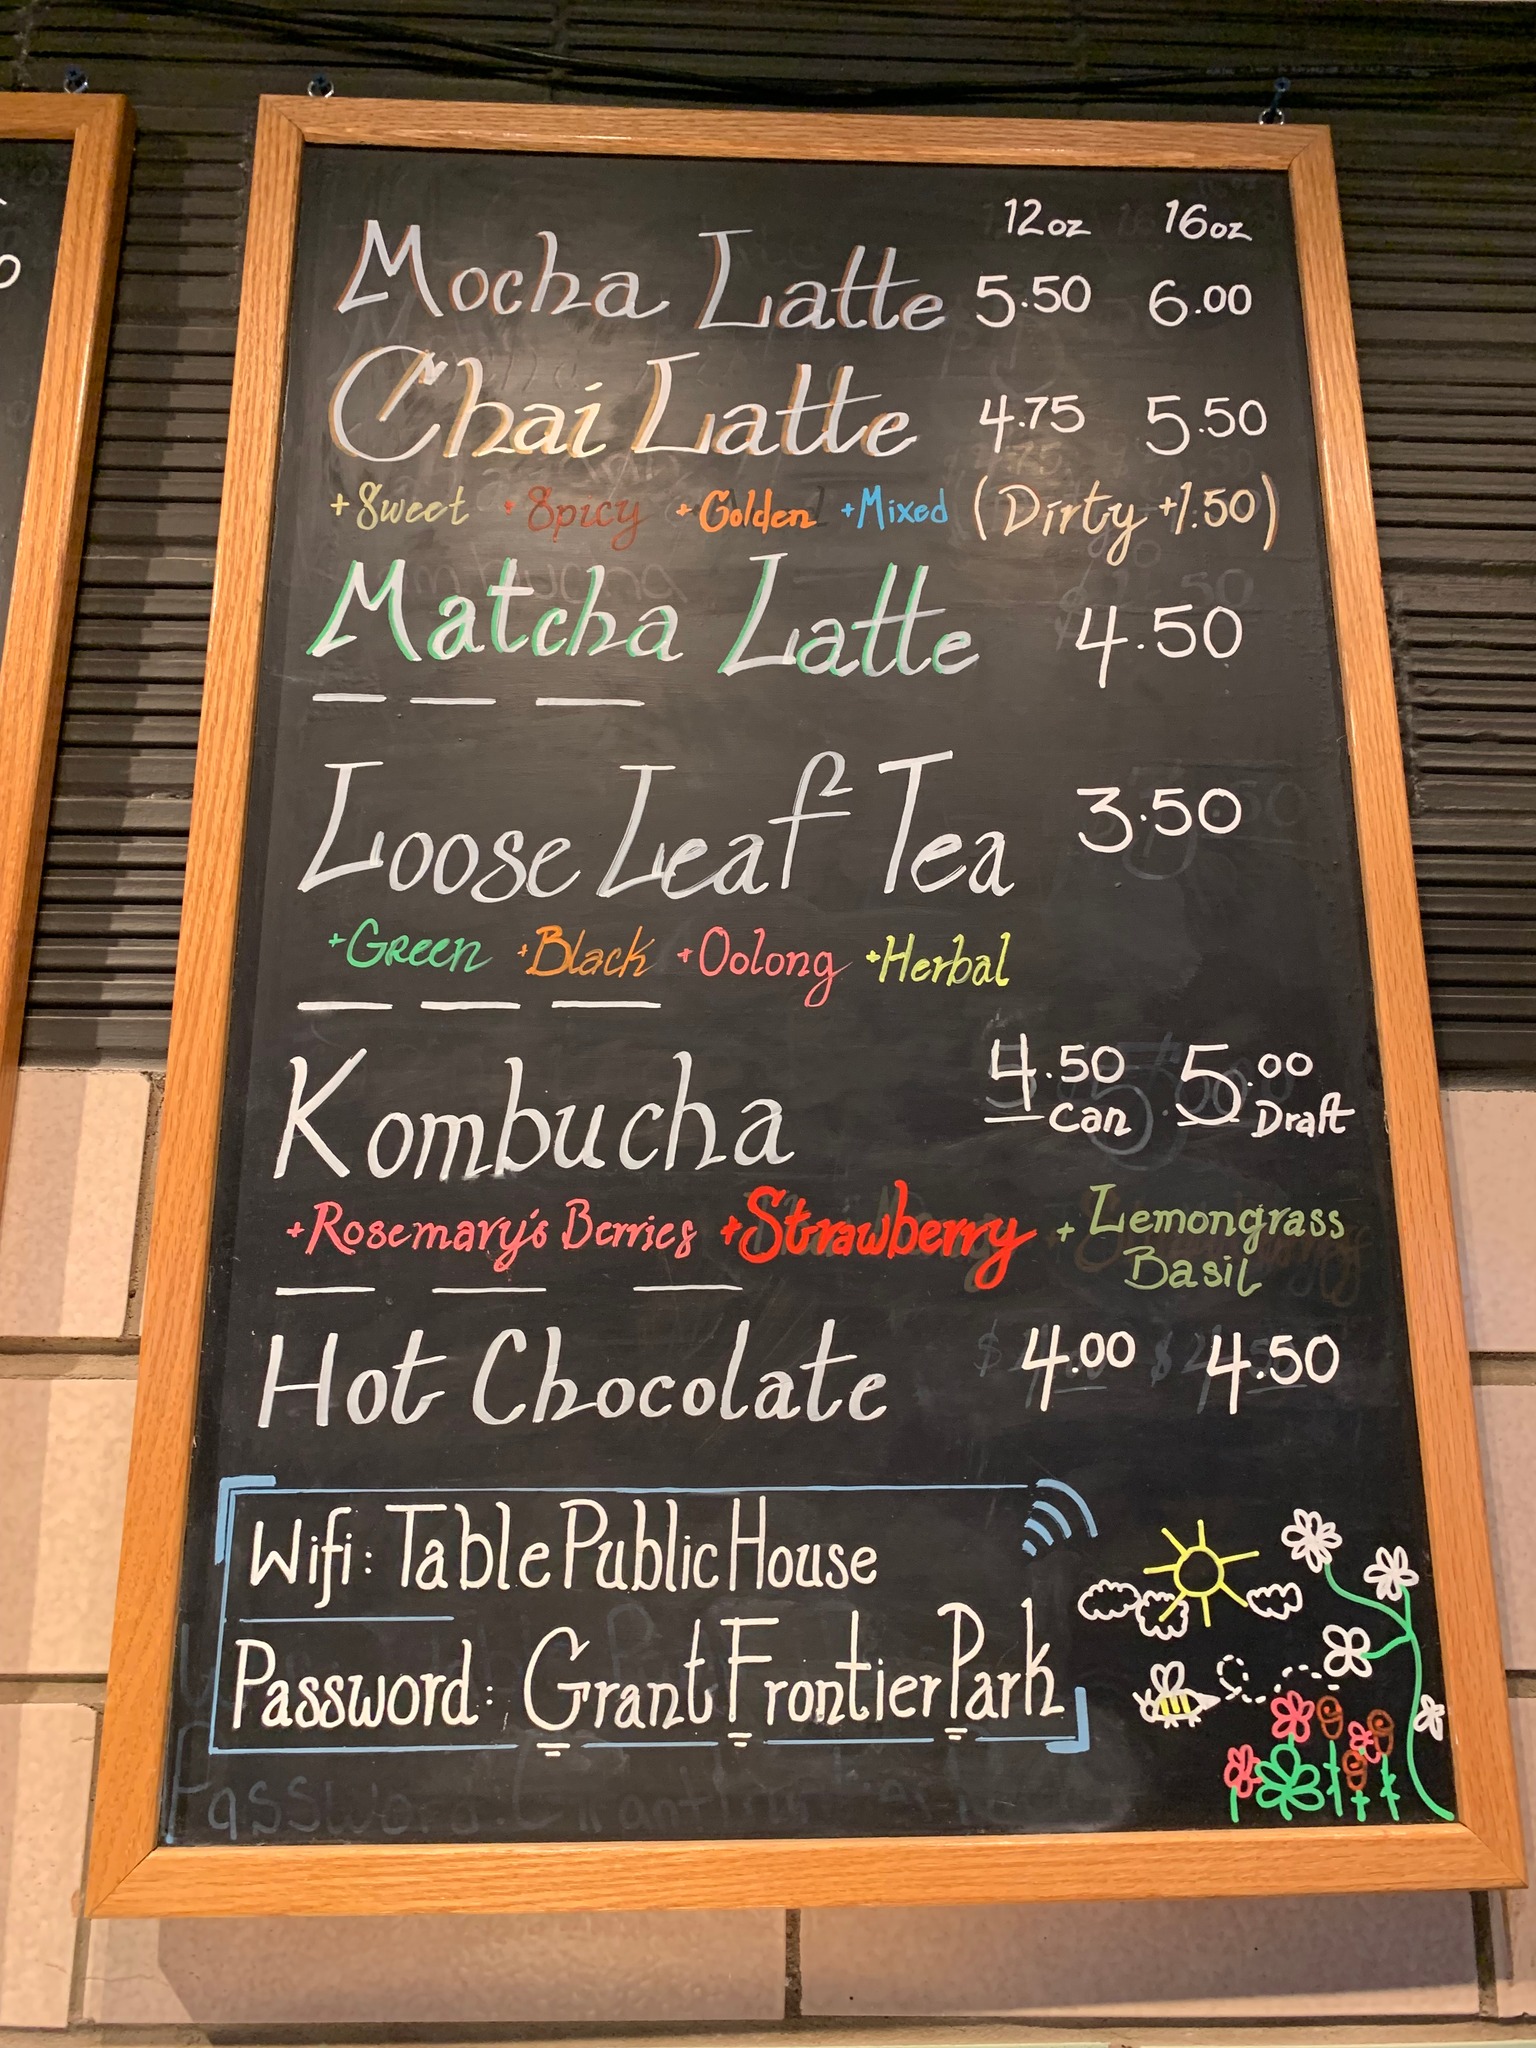 12oz 16oz
Mocha Latte 5.50 6.00
Chai Latte 4.75 5.50
+Sweet +Spicy +Golden +Mixed (Dirty +1.50)
Matcha Latte 4.50
Loose Leaf Tea 3.50
+Green +Black +Oolong +Herbal
Kombucha 4.50 Can 5.00 Draft
+Rosemary's Berries +Strawberry + Lemongrass
Basil
Hot Chocolate 4.00 4.50
Wifi: TablePublicHouse
Password: GrantFrontierPark